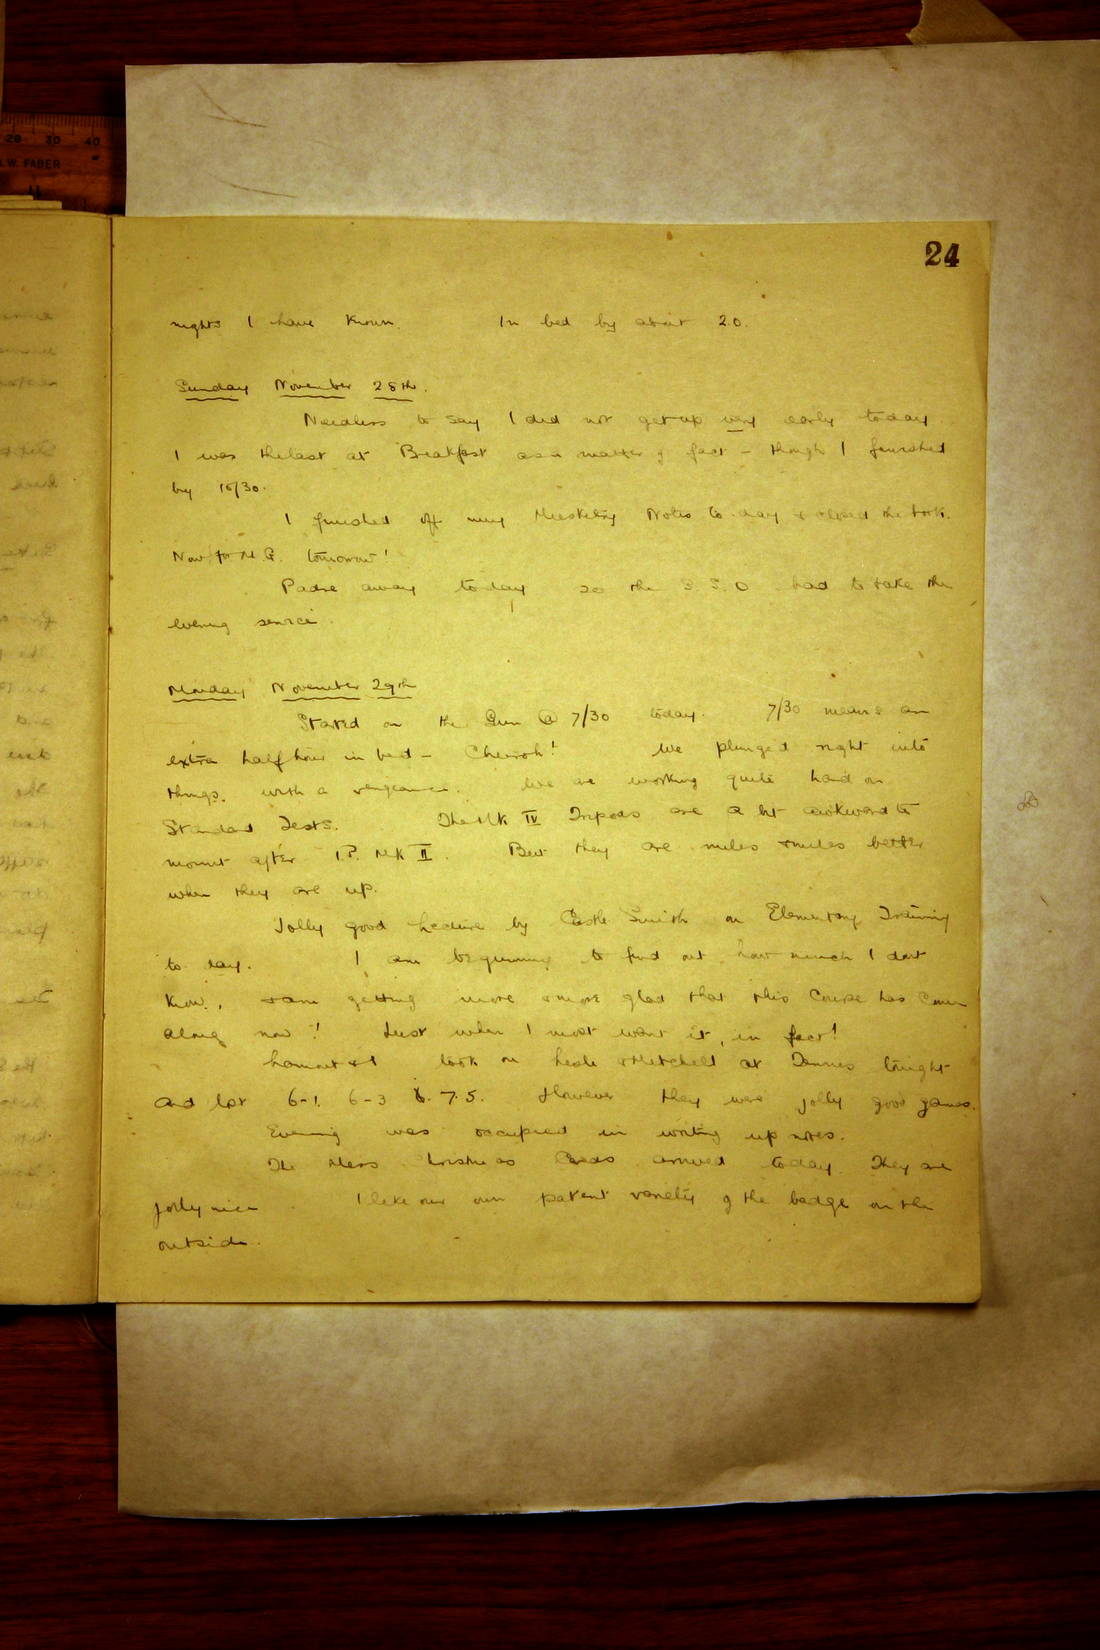 20 30 40
W. FABER
24
nights I have known. In bed by about 2.0.
Sunday November 28th.
Needless to say I did not get up very early today
I was the last at Breakfast as a matter of fact – though I finished
by 10/30.
I finished off my Musketry Notes to day & closed the book.
Now for M.G. tomorrow!
Padre away today so the S.S.O had to take the
evening service.
Monday November 29th
Started on the Gun @ 7/30 today. 7/30 means an
extra half hour in bed – Cheeroh! We plunged right into
things. with a vengeance. We are working quite hard on
Standard Tests. The Mk IV Tripods are a bit awkward to
mount after I.P. MK II. But they are miles & miles better
when they are up.
Jolly good Lecture by Smith on Elementary Training
to day. I am beginning to find out how much I dont
know, & am getting more & more glad that this Course has come
along now! Just when I most want it, in fact!
& I took on & Mitchell at Tennis tonight
and lost 6-1. 6-3 7.5. However they were jolly good games.
Evening was occupied in writing up notes.
The Mess Christmas Cards arrived today. They are
jolly nice I like our own patent variety of the badge on the
outside.